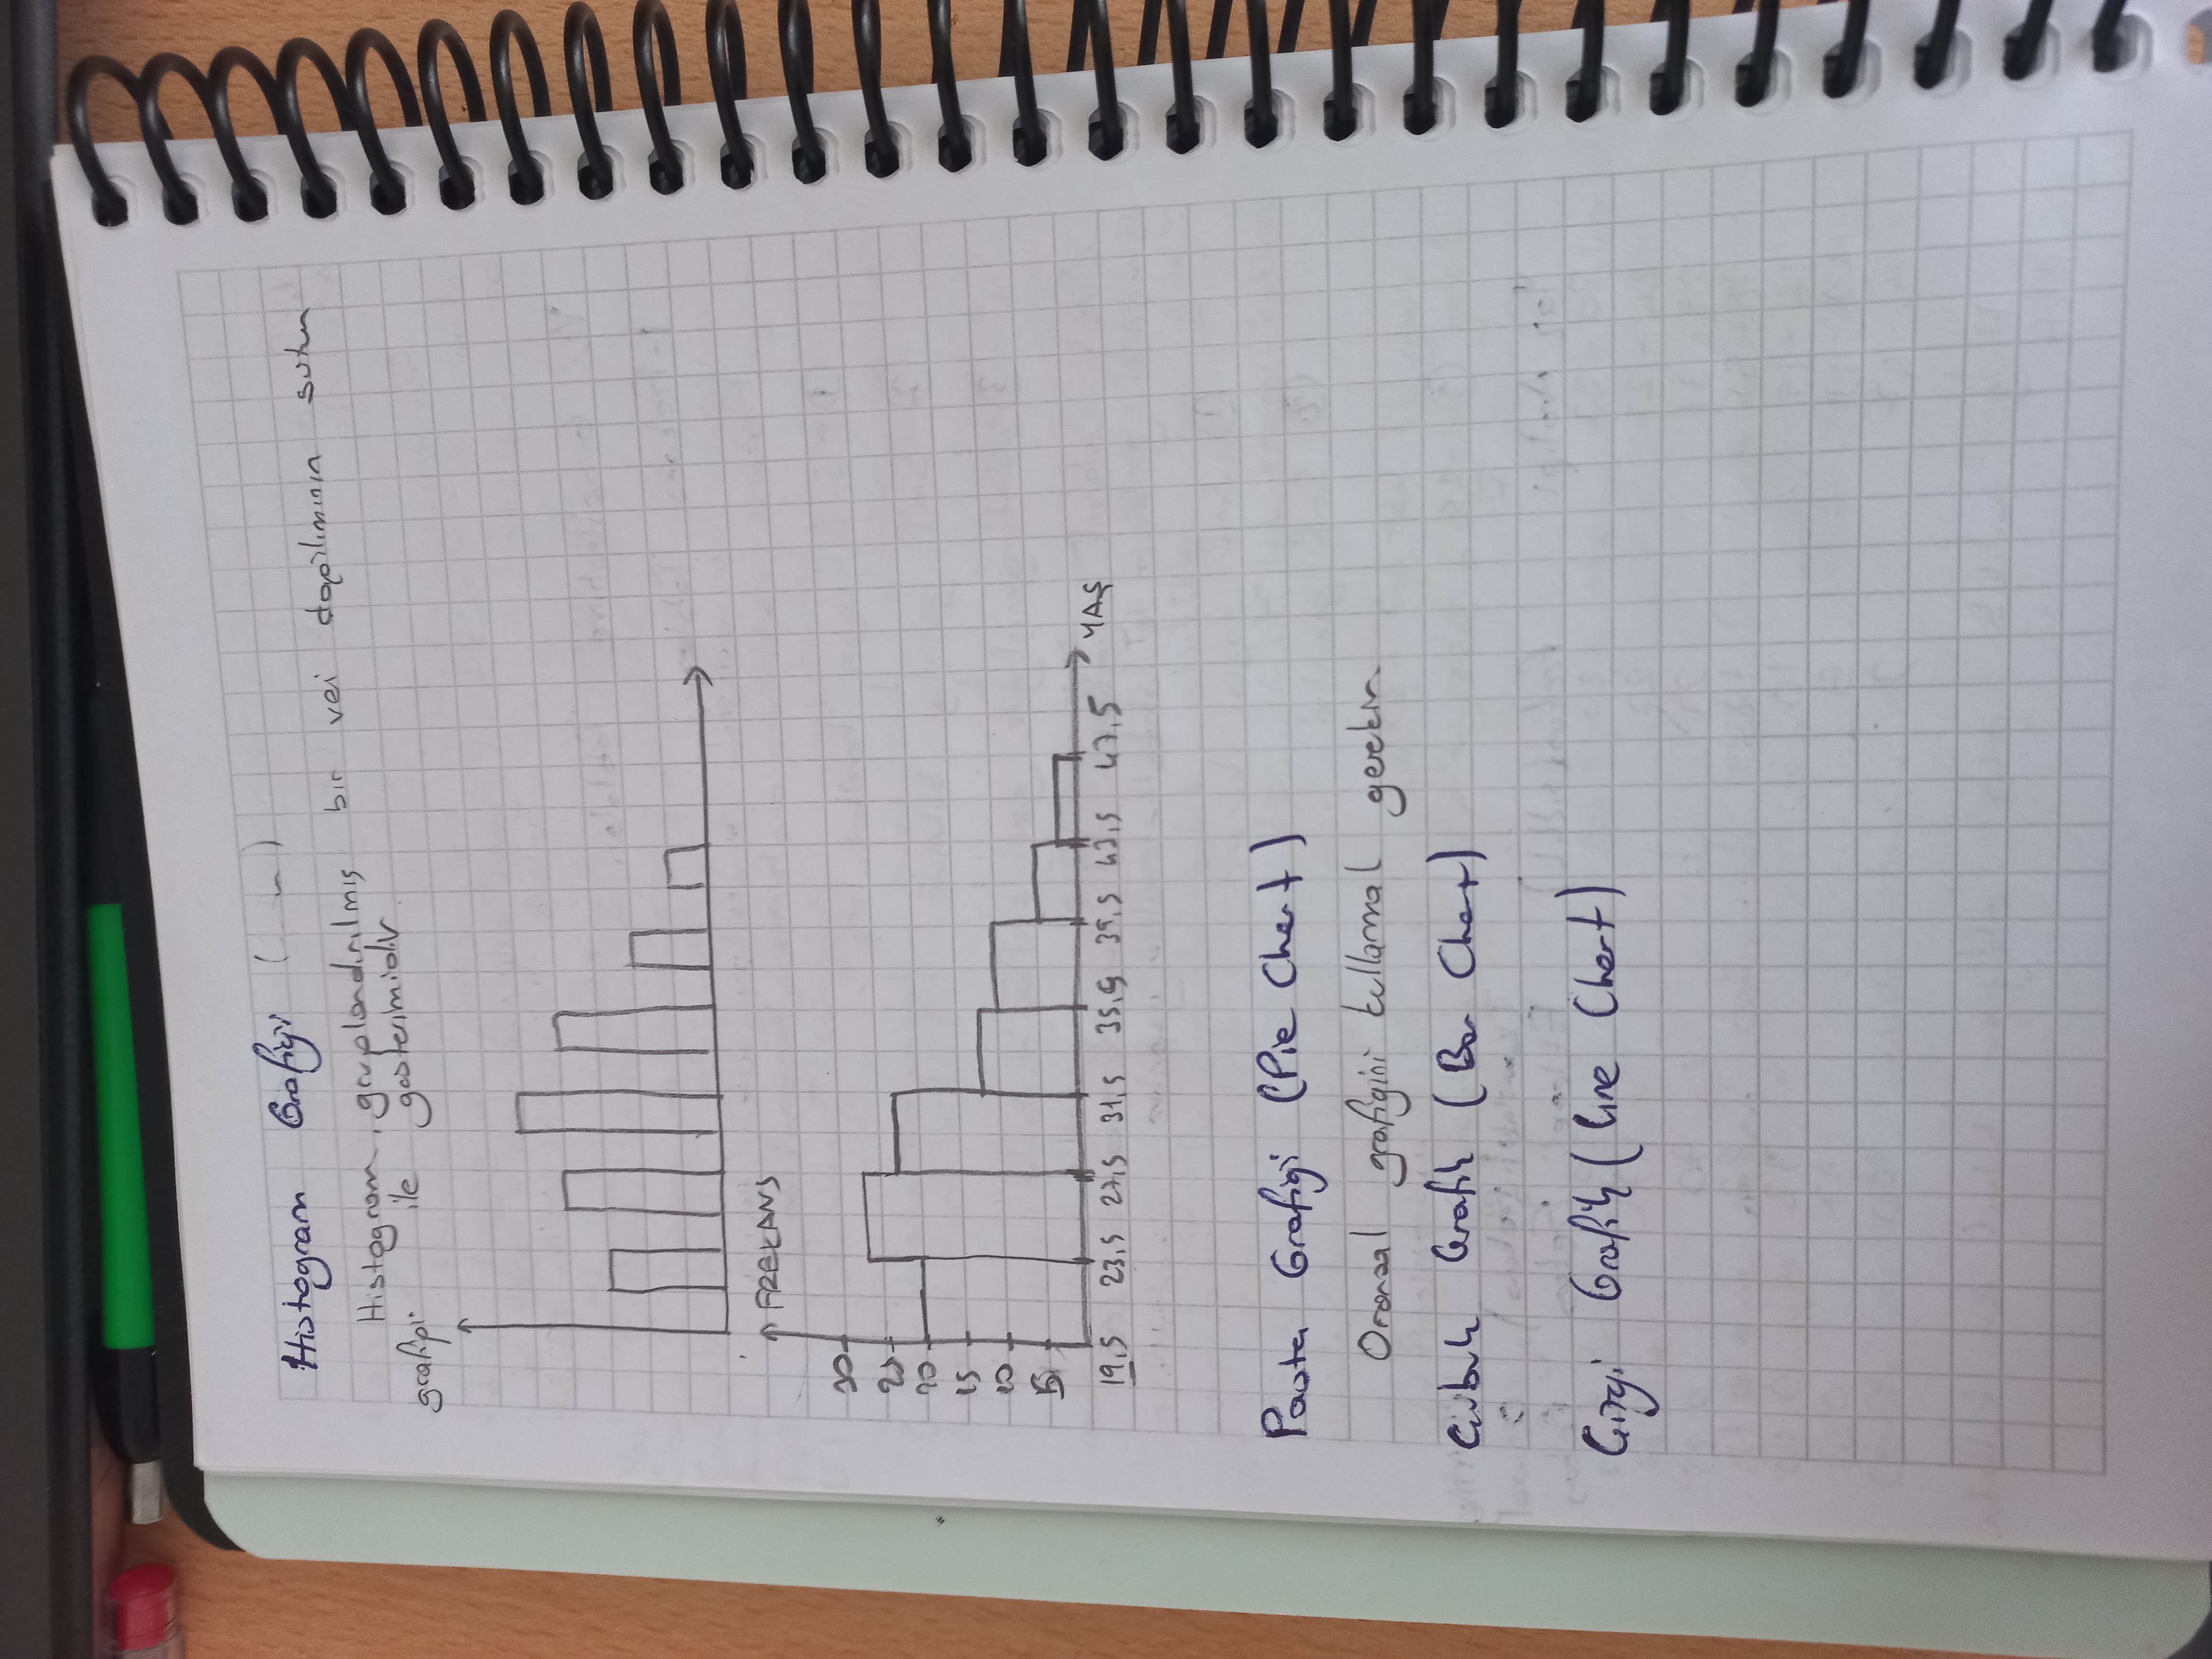 Histogram Grafiği
Histogram, gruplandırılmış bir vei dağılımının sütun
grafiği ile gösterimidir.
FREKANS
30
25
20
15
10
5
19,5 23,5 27,5 31,5 35,5 39,5 43,5 47,5 YAŞ
Pasta Grafiği (Pie Chart)
Oransal grafiğini kullanmal gerekir
Çubuk Grafik (Bar Chart)
Çizgi Grafik (Line Chart)